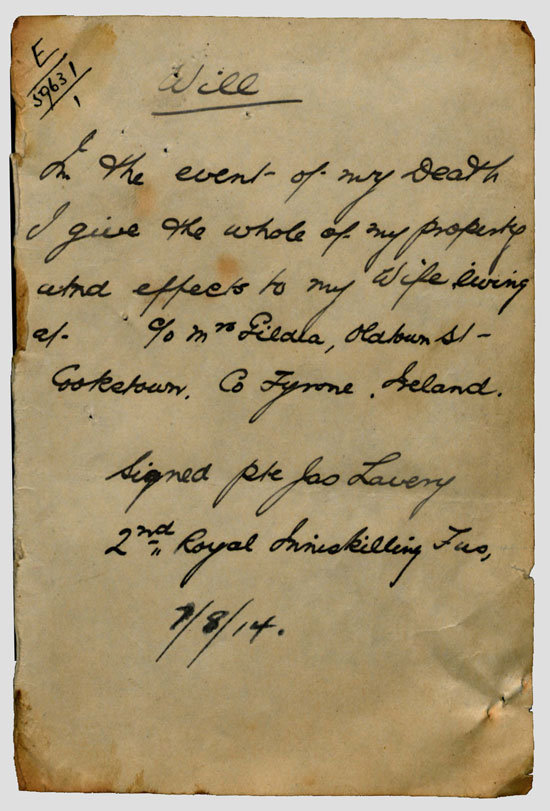 E
59631
1
Will
In the event of my Death
I give the whole of my property
and effects to my Wife living
at c/o Mrs Gildea, Oldtown St-
Cookstown. Co Tyrone, Ireland.
Signed Pte Jas Lavery
2nd Royal Inniskilling Fus,
7/8/14.